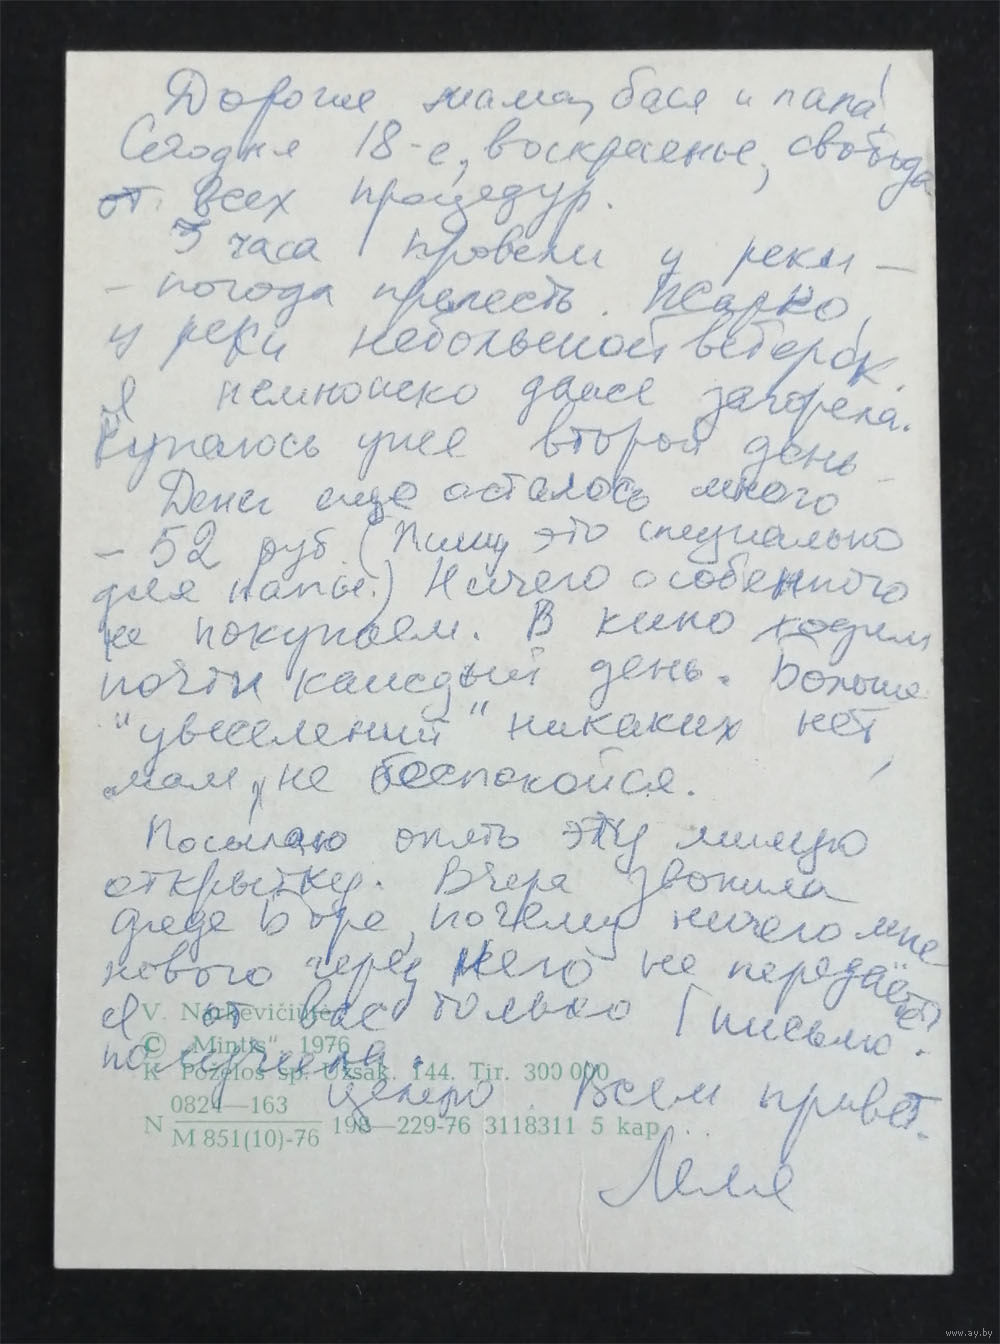 Дорогие мама, бася и папа!
Сегодня 18-е, воскресенье, свобода
от всех процедур.
3 часа провели у реки —
– погода прелесть. Жарко,
у реки небольшой ветерок.
Я немножко даже загорела.
Купаюсь уже второй день
Денег еще осталось много
– 52 руб (Пишу это специально
для папы.) Ничего особенного
не покупаем. В кино ходим
почти каждый день. Больше
"увеселений" никаких нет,
мам, не беспокойся.
Посылаю опять эту милую
открытку. Вчера звонила
деде Боре, почему ничего мне
нового через него не передаёте?
Я от вас только 1 письмо
получила.
Целую. Всем привет.
Леля
V. Narkevičiūtė
© „Mintis“, 1976
K Poželos sp. Užsak. 144. Tir. 300 000
N 0824—163
M 851(10)-76 198—229-76 3118311 5 kap.
www.ay.by